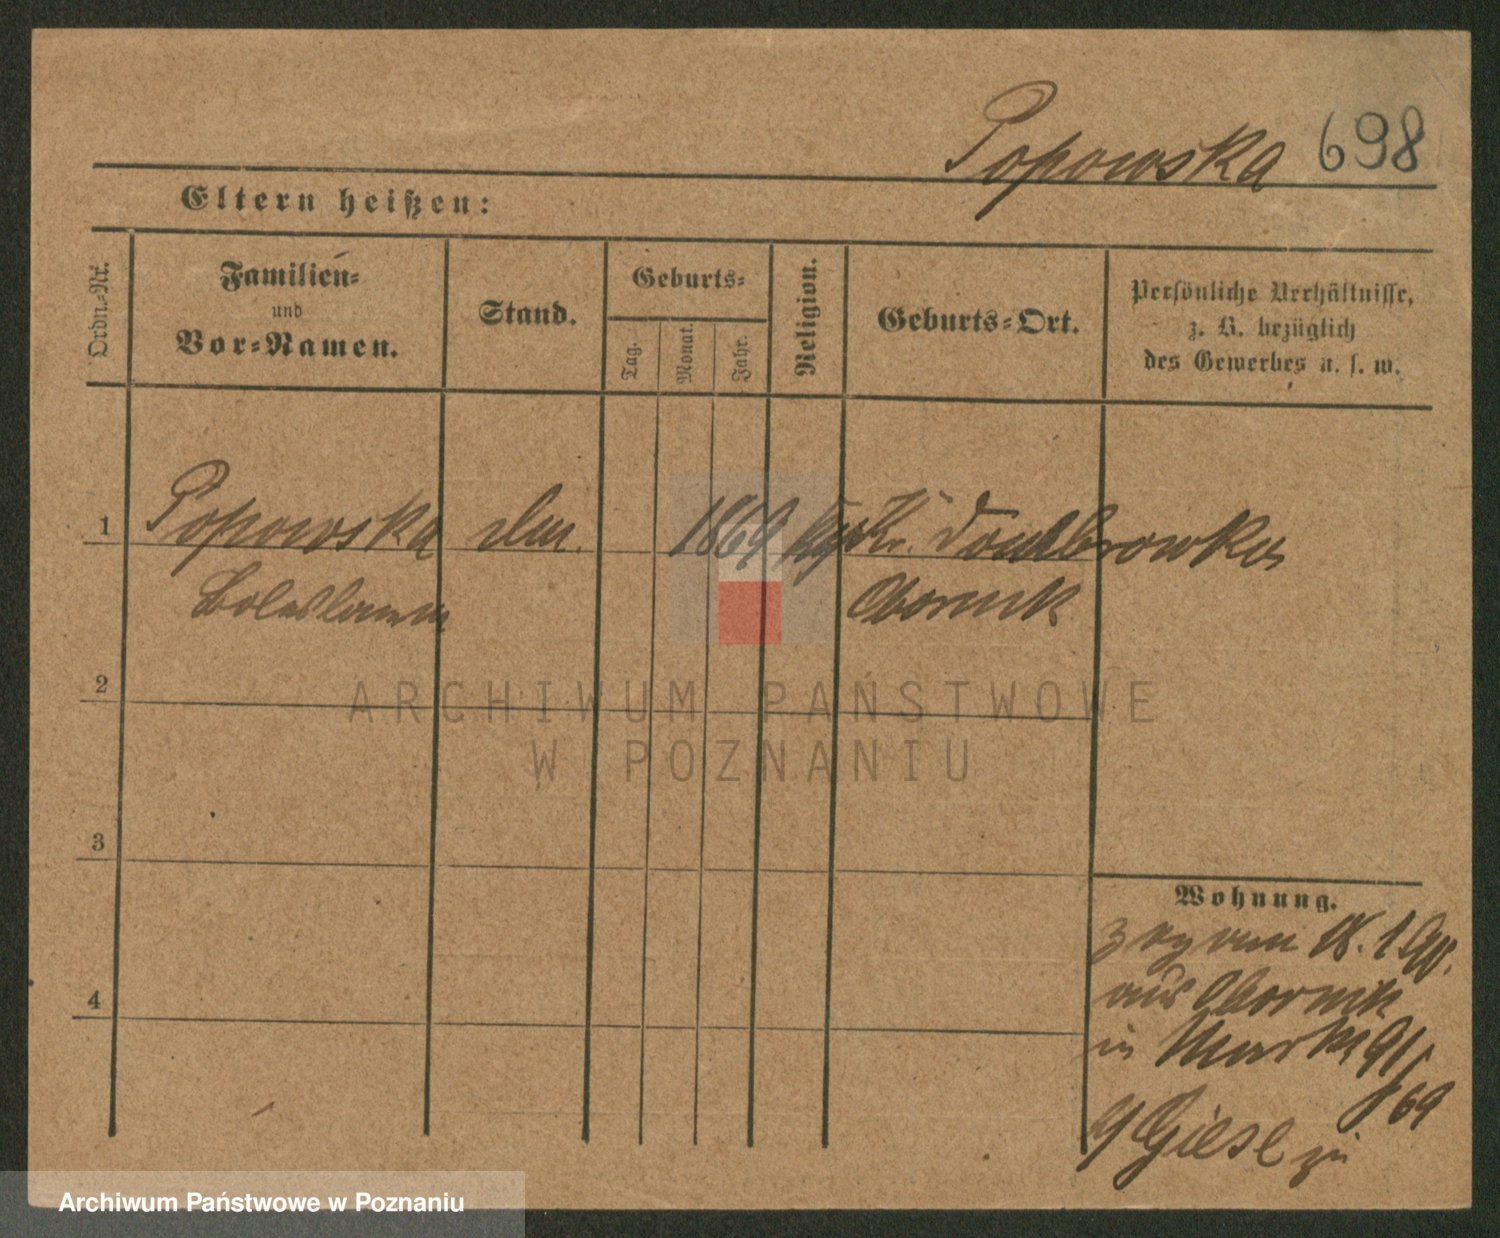 Popowska 698
Eltern heißen:
Ordn.-Nr.
Familien-
und
Vor-Namen.
Stand.
Geburts-
Tag.
Monat.
Jahr.
Religion.
Geburts-Ort.
Persönliche Verhältnisse,
z. B. bezüglich
des Gewerbes u. s. w.
1 Popowska 1869 Dombrowka
Boleslawa Obornik
2
ARCHIWUM PAŃSTWOWE
W POZNANIU
3
Wohnung.
aus Obornik
4
in Markt 91/
69
Giese zu
Archiwum Państwowe w Poznaniu